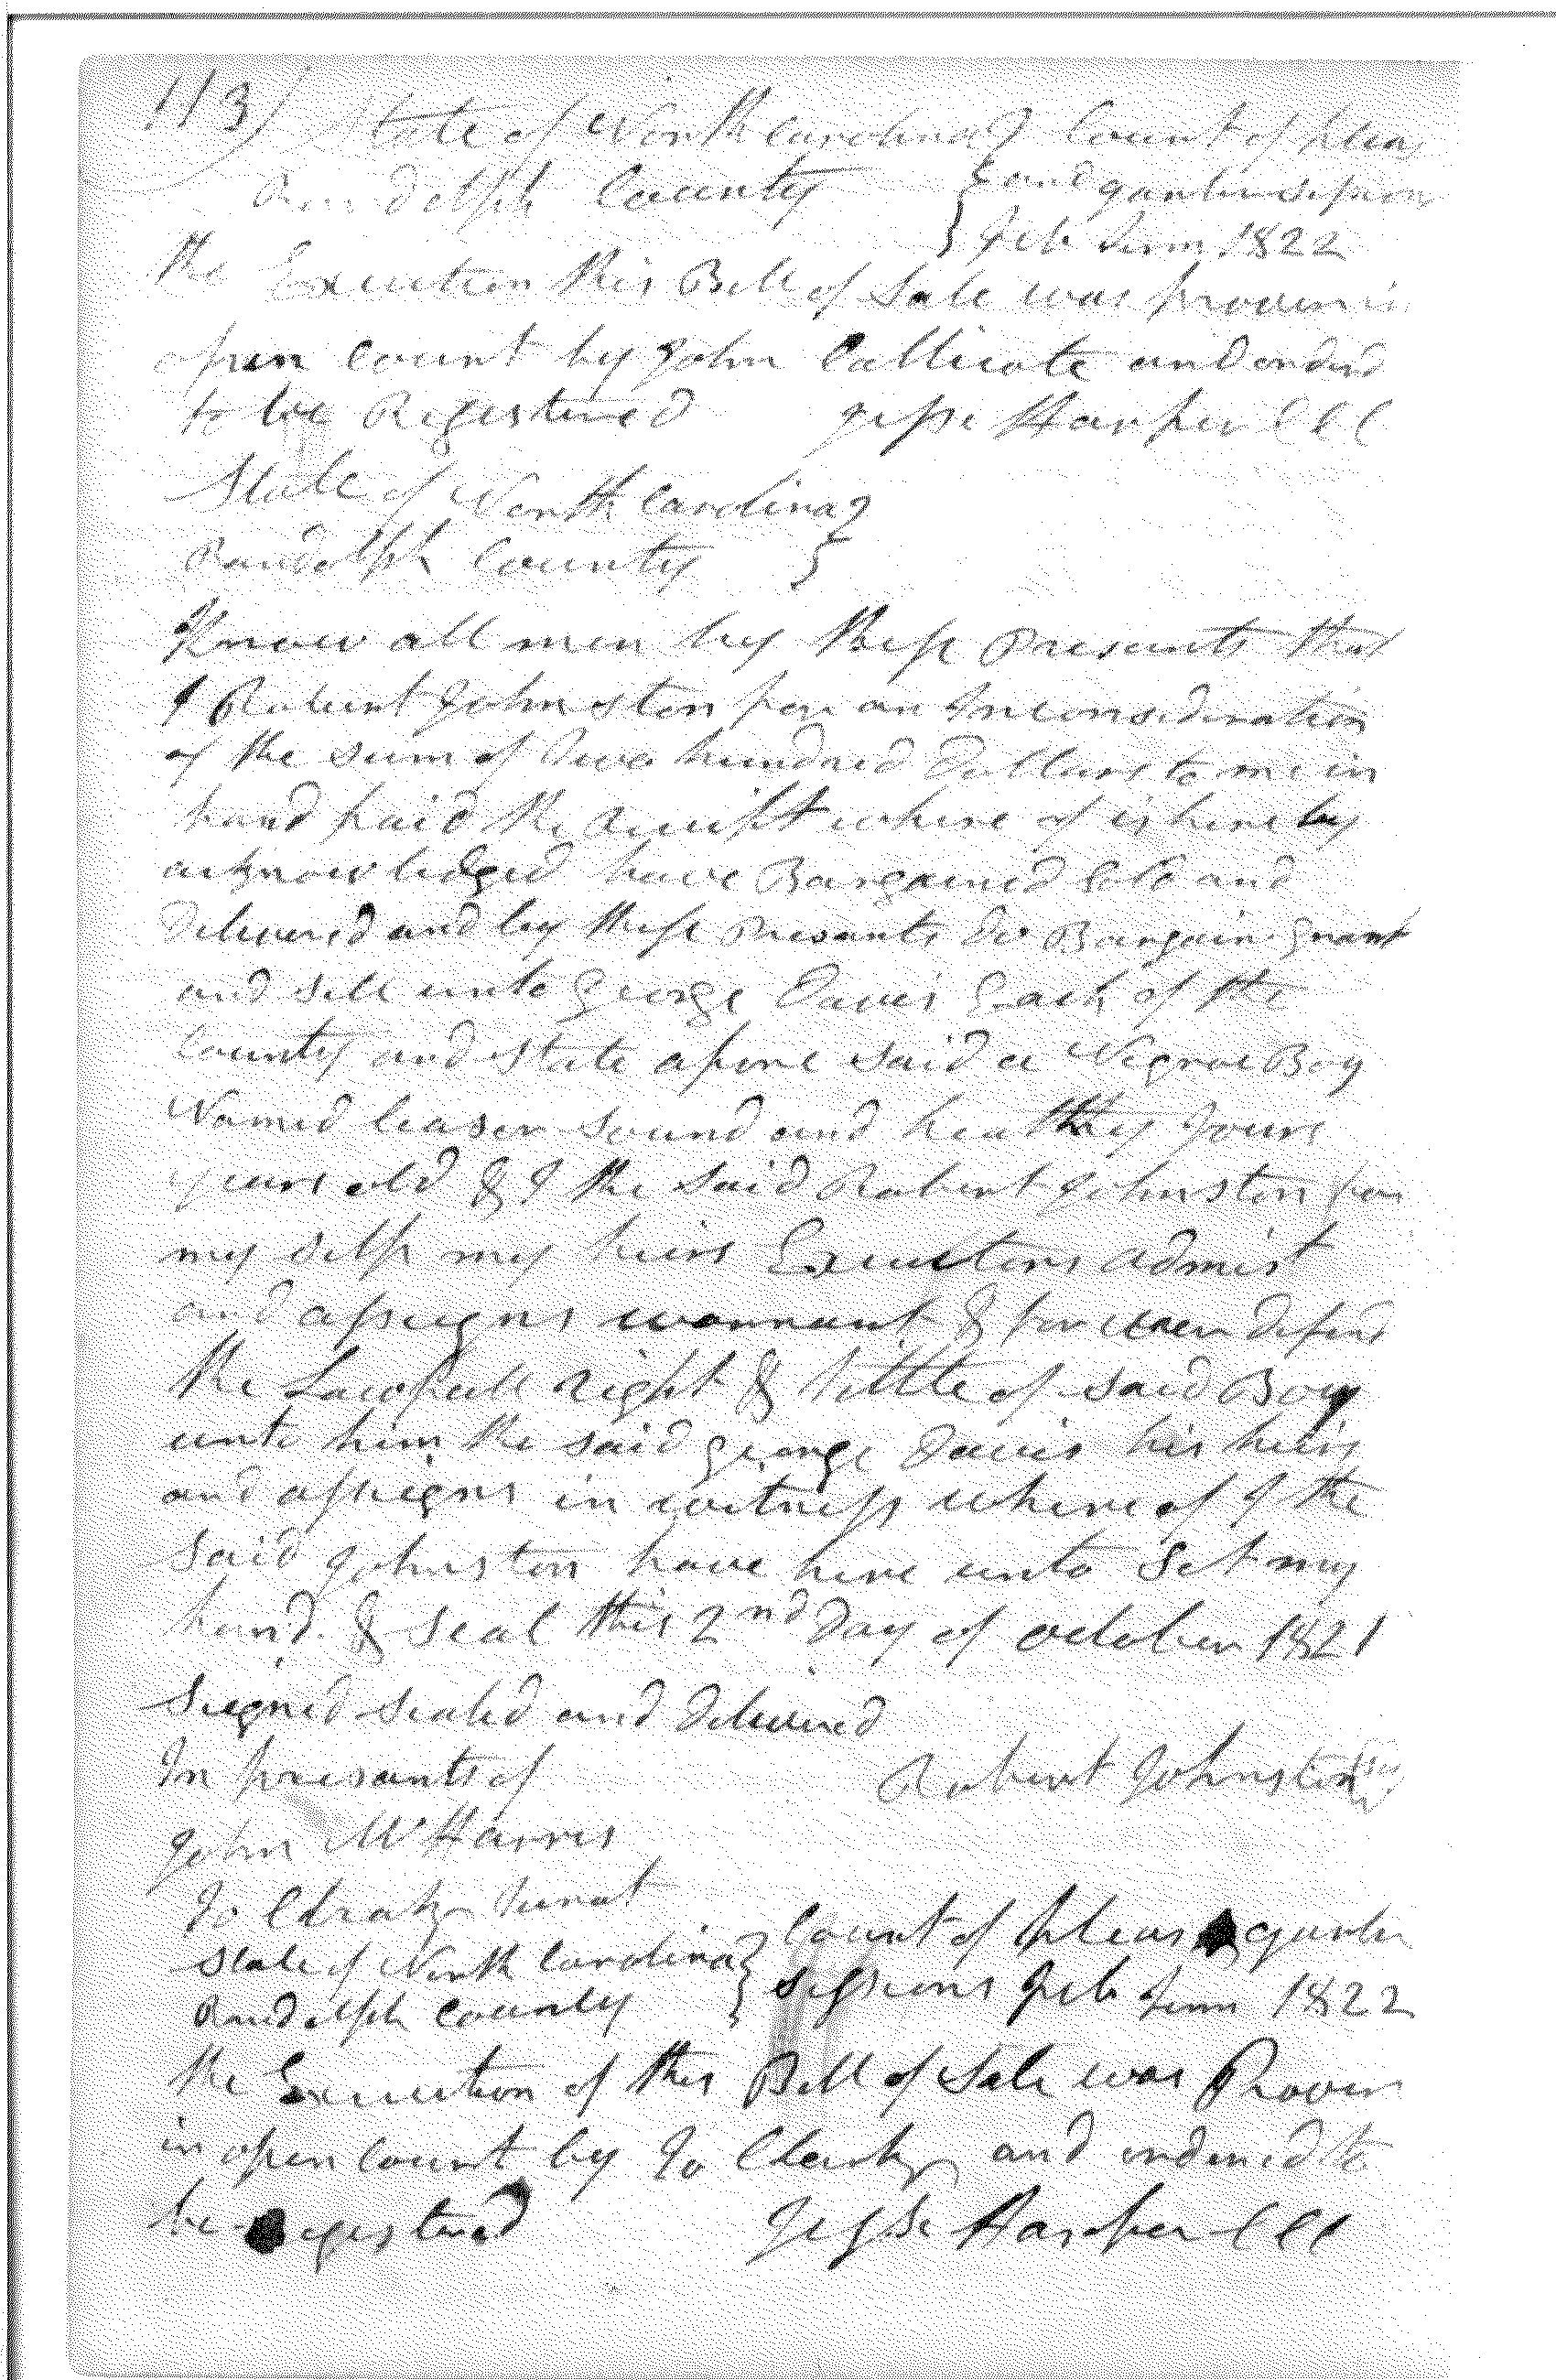 113/
State of North Carolina } Court of pleas
Randolph County } and quarter sessions
} Feb term 1822
the Execution this Bill of Sale was proven in
open Court by John Callicote and orderd
to be Registered Jesse Harper CCC
State of North Carolina }
Randolph County }
Know all men by these Presents that
I Robert Johnston for an Inconsideration
of the sum of two hundred Dollars to me in
hand paid the receipt where of is here by
acknowledged have Bargained sold and
Delivered and by these Presants do Bargain grant
and sell unto George Davis Each of the
County and State afore said a Negroe Boy
Named Ceaser sound and healthy fours
years old & I the said Robert Johnston for
my self my heirs Executors admist
and assigns warrant & for ever defend
the Lawfull right & tittle of said Boy
unto him the said george Davis his heirs
and assigns in witness where of I the
said Johnston have here unto Set my
hand & seal this 2nd day of october 1821
Siegned sealed and delivered
In presants of Robert Johnston
John M Harris
Jo Clark Jurat
State of North Carolina } Court of pleas & quarter
Randolph County } sessions Feb term 1822
the Execution of this Bill of Sale was Proven
in open Court by Jo Clark and ordered to
be Registered Jesse Harper CCC